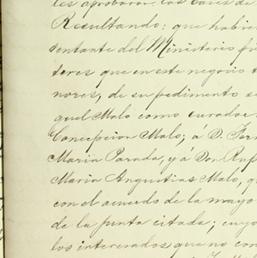 les aprobaron las bases de
Resultando: que habie
sentante del Ministerio fis
teres que en este negocio t
nores, de su pedimento se
quel Malo como curador
Concepcion Malo; a D. Fer
Maria Parada, y á Don Ruf
Maria Angustias Malo, q
con el acuerdo de la mayo
de la junta citada; cuyo
los interesados que no con